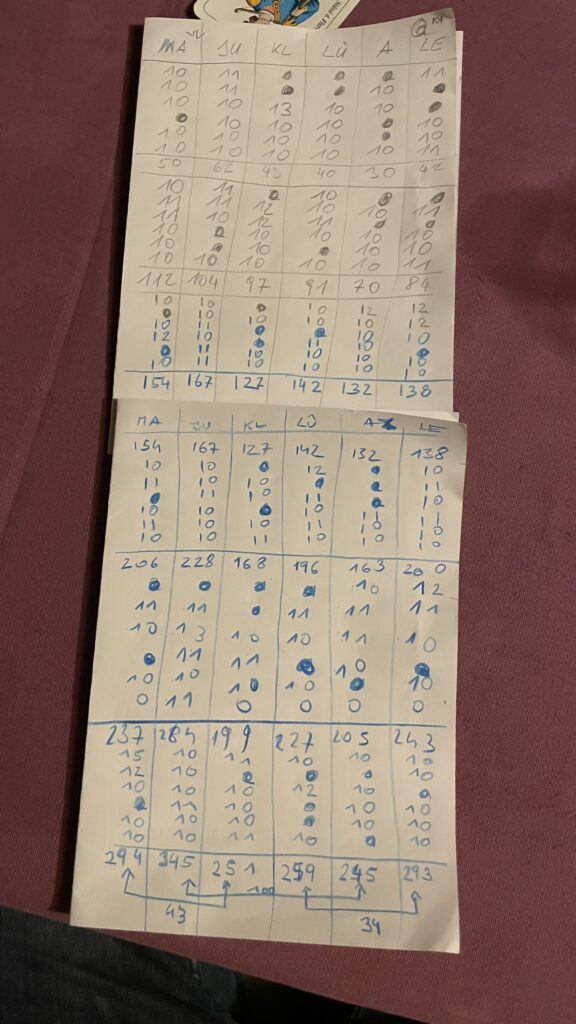 Stávd d'Plan
MA JU KL LÜ A LE
10 11 ● ● ● 11
10 11 ● ● 10 ●
10 10 13 10 10 ●
● 10 10 10 ● 10
10 10 10 10 ● 10
10 10 10 10 10 11
50 62 43 40 30 42
10 11 ● 10 ● ●
11 11 12 10 10 11
11 10 12 11 ● ●
10 ● 10 10 10 10
10 ● 10 ● 10 10
10 10 10 10 10 11
112 104 97 91 70 84
10 10 ● 10 12 12
● 10 10 10 10 12
154 167 127 142 132 138
MA JU KL LÜ A LE
154 167 127 142 132 138
10 10 ● 12 ● 10
11 10 10 ● ● 11
● 11 10 10 ● 10
10 10 ● 10 11 11
11 10 10 11 10 10
10 10 11 10 10 10
206 228 168 196 163 200
● ● ● ● 10 12
11 11 ● 11 11 11
10 13 10 10 11 10
● 11 11 ● 10 ●
10 10 10 10 ● 10
0 11 0 0 0 0
237 284 199 227 205 243
15 10 11 10 10 10
12 10 ● ● ● 10
10 10 10 12 10 ●
● 11 10 ● 10 10
10 10 10 ● 10 10
10 10 11 10 ● 10
294 345 251 259 245 293
100
43 34